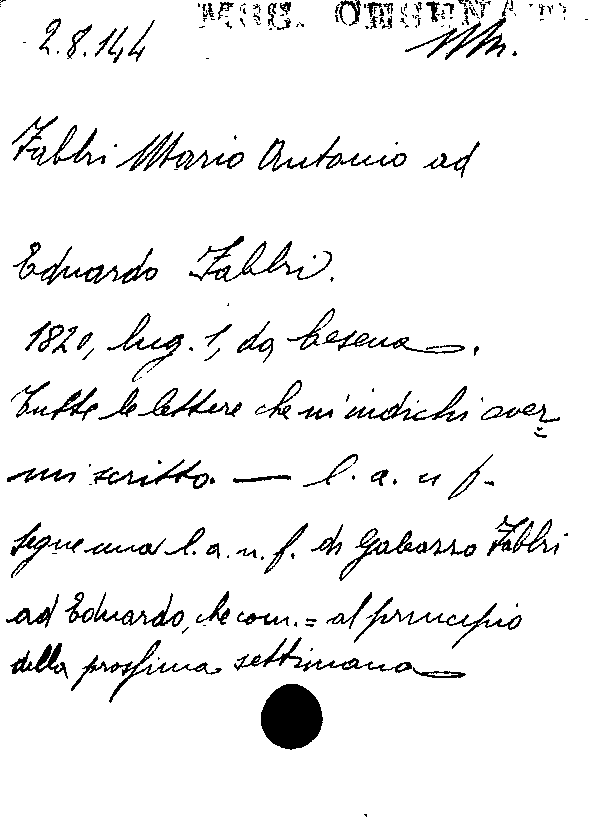 MSS. CESENATI.
2.8.144
Mn.
Fabbri Mario Antonio ad
Eduardo Fabbri.
1820, lug. 1, da Cesena.
Tutte le lettere che m'indichi aver=
mi scritto. — l. a. n f.
Segue una l. a. n. f. di Fabbri
ad Eduardo, che com. = al principio
della prossima settimana